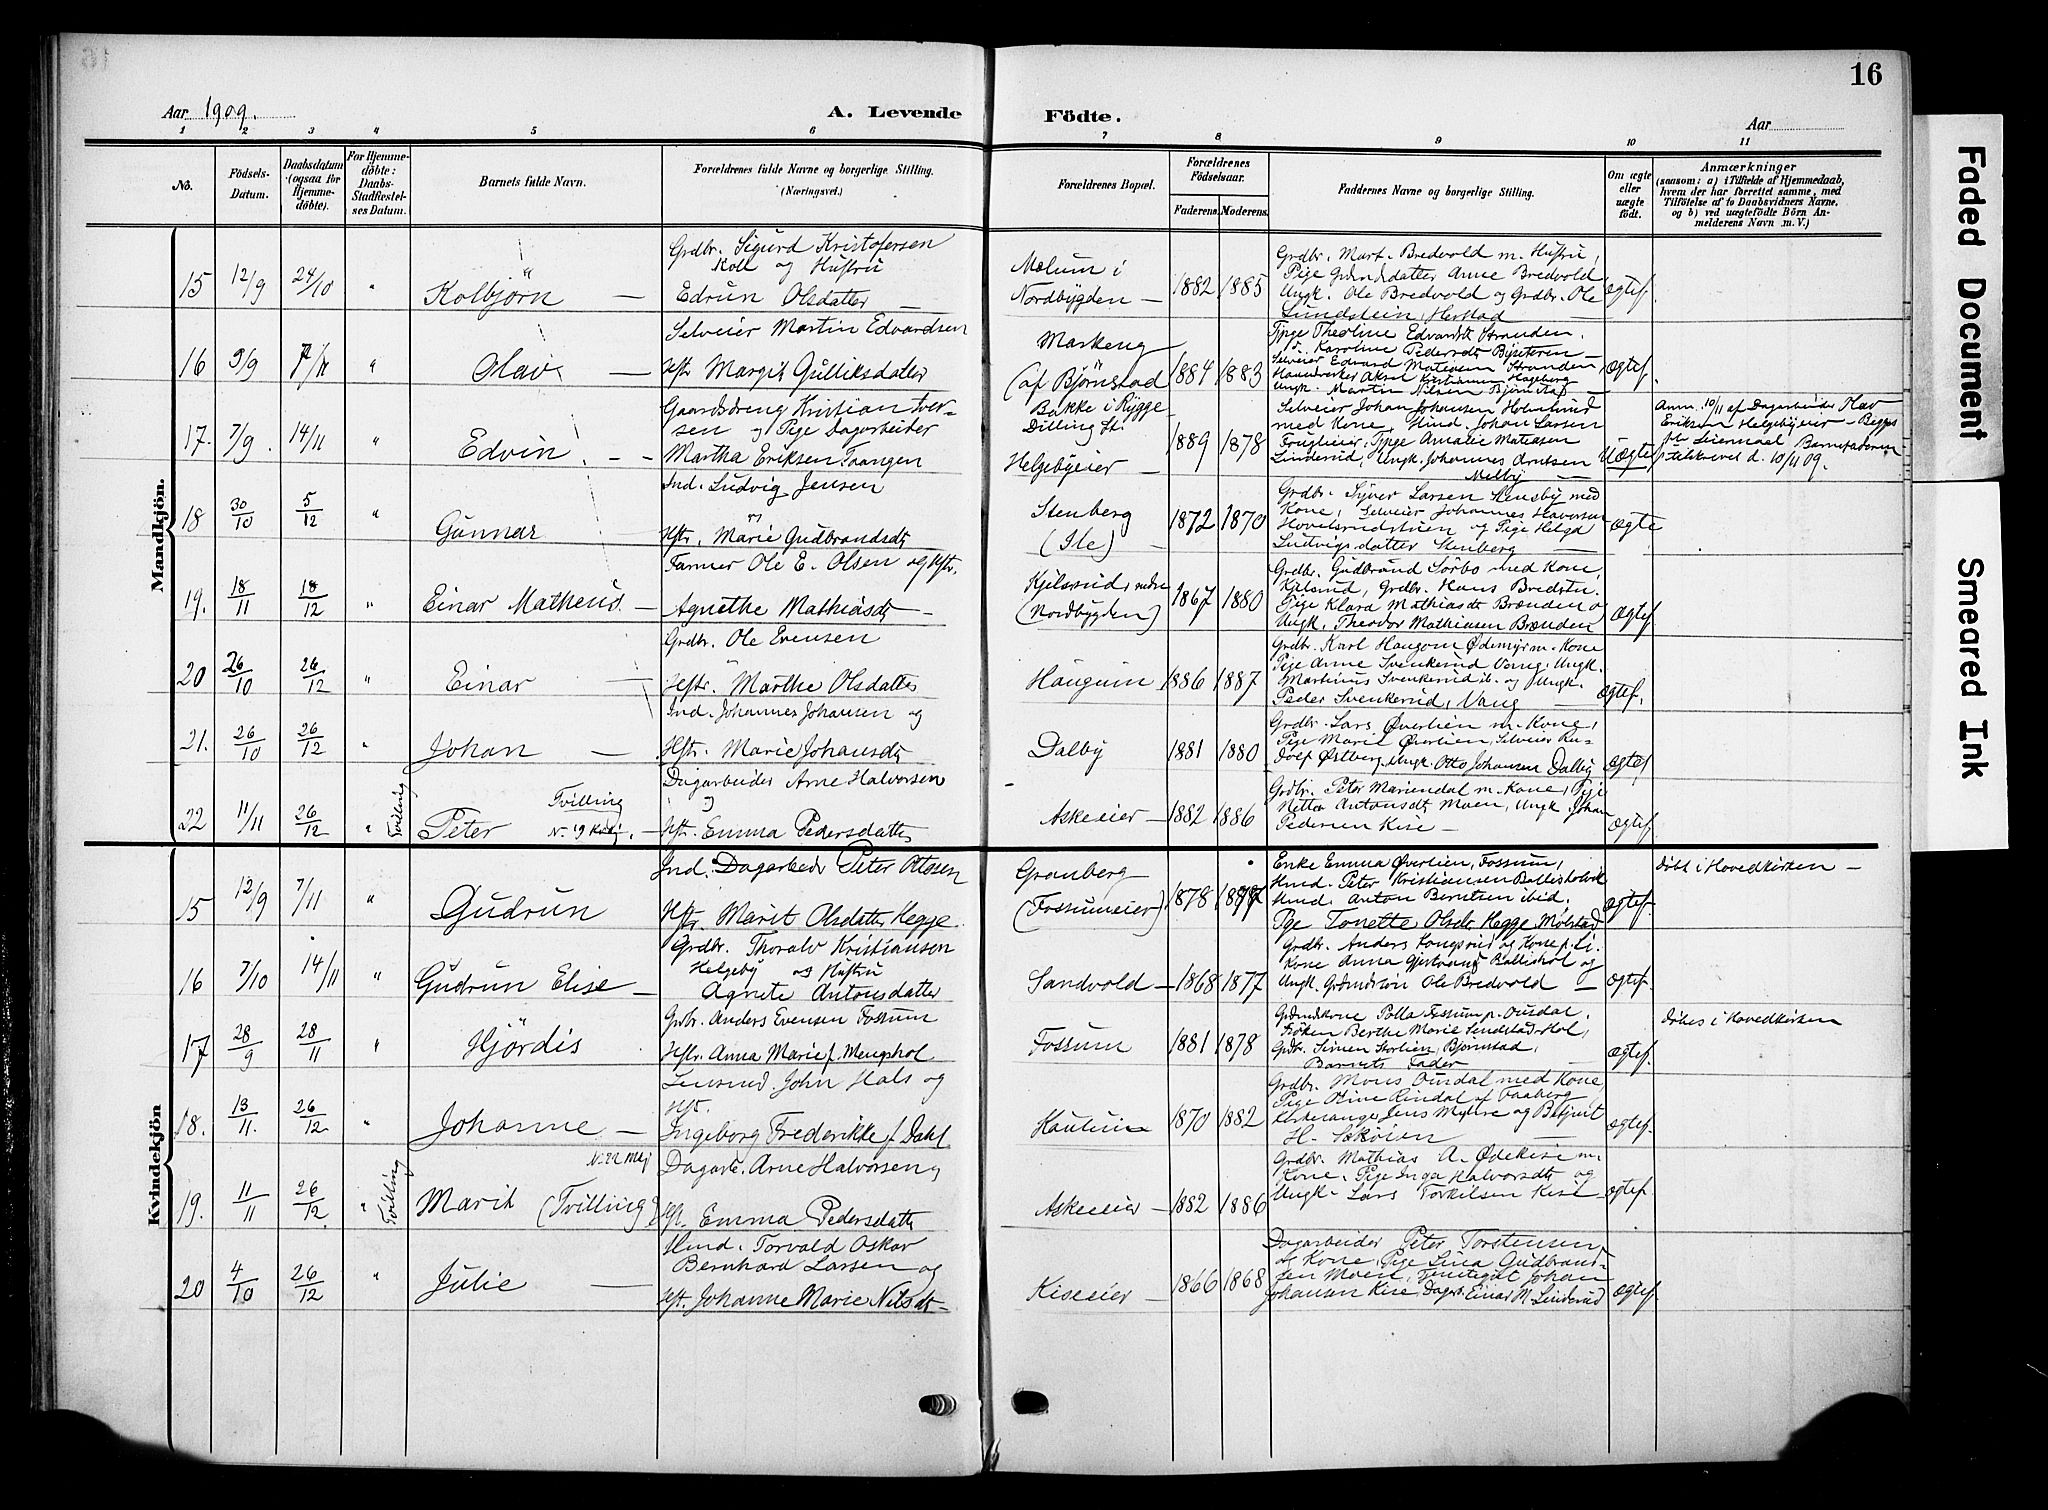 16
Aar 1909.
A. Levende Födte.
Aar
1 2 3 4 5 6 7 8 9 10 11
No.
Födsels-
Datum.
Daabsdatum
(ogsaa for
Hjemme-
döbte).
For Hjemme-
döbte:
Daabs-
Stadfæstel-
ses Datum.
Barnets fulde Navn.
Forældrenes fulde Navne og borgerlige Stilling.
(Næringsvei.)
Forældrenes Bopæl.
Forældrenes
Födselsaar.
Faderens. Moderens.
Faddernes Navne og borgerlige Stilling.
Om ægte
eller
uægte
födt.
Anmærkninger
(saasom: a) i Tilfælde af Hjemmedaab,
hvem der har forrettet samme, med
Tilföielse af to Daabsvidners Navne,
og b) ved uægtefödte Börn An-
melderens Navn m. V.)
Mandkjön.
15 12/9 24/10 " Kolbjørn —
Grdbr. Sigurd Kristofersen
Koll og Hustru
Edrun Olsdatter —
Mælum i
Nordbygden — 1882 1885
Grdbr. Mart. Bredvold m. Hustru,
Pige Grdmdsdatter Anne Bredvold
Ungk. Ole Bredvold og Grdbr. Ole
Sundstein, Herstad
Ægtef.
16 9/9 7/11 " Olav —
Selveier Martin Edvardsen
Hstr Margit Gulliksdatter
Markeng
(af Bjørnstad 1884 1883
Tjpge Theoline Edvardsdt Stranden.
Karoline Pedersdt Bjseteren —
Selveier Edvard Mateasen Stranden
Haandverker Aksel Kristiansen Hageberg
Ungk. Martin Nilsen Bjørnstad
Ægtef.
17. 7/9. 14/11 " Edvin. —
Gaardsdreng Kristian Iver-
sen og Pige Dagarbeider
Martha Eriksen Traangen
Bakke i Rygge
Dilling St.
Helgebyeier — 1889 1878
Selveier Johan Johansen Holmlund
med Kone, Hmd. Johan Larsen
Fruglieier, Tjpge Amalie Mateasen
Linderud, Ungk. Johannes Arntsen
Melby —
Uægte
Anm. 10/11 af Dagarbeider Olav
Eriksen Helgebyeier — Begges
Leiermaal. Barnefaderen
tilskrevet d. 10/11 09.
18 30/10 5/12 " Gunnar —
Ind. Ludvig Jensen
Hstr. Marie Gudbrandsdt
Stenberg
(Ile) — 1872 1870
Grdbr. Syver Larsen Stensby med
Kone, Selveier Johannes Havorsen
Hovelsrudstuen og Pige Helga
Ludvigsdatter Stenberg —
Ægte
19. 18/11 18/12 " Einar Matheus. —
Farmer Ole E. Olsen og Hstr.
Agnethe Mathiasdt —
Kjelsrud, nedre
(Nordbygden) 1867 1880
Grdbr. Gudbrand Sørbo med Kone,
Kjelsrud, Grdbr. Hans Bredstu.
Pige Klara Mathiasdt Brænden og
Ungk. Theodor Mathiasen Brænden
Ægtef
20 26/10 26/12 " Einar —
Grdbr. Ole Evensen
Hstr. Marthe Olsdatter
Haugum — 1886 1887
Grdbr. Karl Haugom Ødemyr m. Kone
Pige Anne Svenkerud Vang. Ungk.
Martinus Svenkerud ib. og Ungk.
Peder Svenkerud, Vang —
Ægtef.
21. 26/10 26/12 " Johan —
Ind. Johannes Johansen og
Hstr. Marie Johansdt
Dalby 1881 1880
Grdbr. Lars Øverlien m. Kone,
Pige Marie Øverlien, Selveier Ru-
dolf Østberg, Ungk. Otto Johansen Dalby
Ægtef
22 11/11 26/12 " Tvilling Peter Tvilling
N. 19 Kvkj. —
Dagarbeider Arne Halvorsen
og
Hstr. Emma Pedersdatter
Askeeier — 1882 1886
Grdbr. Peter Mariendal m. Kone, Pige
Netter Antonsdt Moen, Ungk. Johan
Pedersen Kise —
Ægtef
Kvindekjön
15 12/9 7/11 " Gudrun
Ind. Dagarbeider Peter Ottosen
Hstr. Marit Olsdatter Hegge.
Granberg
(Fossumeier) 1878 1877
Enke Emma Øverlien, Fossum,
Hmd. Peter Kristiansen Ballishol
Hmd. Anton Berntsen ibid.
Pge Tonette Olsdr. Hegge Mølstad
Ægtef.
døbt i Hovedkirken —
16 7/10 14/11 " Gudrun Elise —
Grdbr. Thoralv Kristiansen
Helgeby og Hustru
Agnete Antonsdatter
Sandvold — 1868 1877
Grdbr. Anders Kongsrud og Kone p. Li.
Kone Anna Gjestvang Ballishol og
Ungk. Grdmdssøn Ole Bredvold —
Ægtef.
17 28/9 28/11 " Hjördis
Grdbr. Anders Evensen Fossum
Hstr. Anna Marie f. Mengshol
Fossum 1881 1878
Grdmdskone Polla Fossum p. Ousdal.
Frøken Berthe Marie Lindstad Hol,
Grdbr. Simen Storlien, Bjørnstad,
Barnets Fader
Ægtef.
døbes i Hovedkirken
18. 13/11. 26/12 " Johanne —
Lensmd. John Hals og
Hst.
Ingeborg Frederikke f. Dahl
Hautuin 1870 1882
Grdbr. Mons Ousdal med Kone
Pige Oline Rindal af Faaberg
Kirkesanger Jens Myhre og Befvnt
H. Sækøien —
Ægtef.
19. 11/11 26/12 " Tvilling Marit (Tvilling)
N. 22 Mkj
Dagarb. Arne Halvorsen og
Hst. Emma Pedersdatter
Askeeier — 1882 1886
Grdbr. Mathias A. Ødekise m.
Kone, Pige Inga Halvorsdt og
Ungk. Lars Torkilsen Kise —
Ægtef.
20 4/10 26/12 " Julie —
Hmd. Torvald Oskar
Bernhard Larsen og
Hst. Johanne Marie Nilsdt —
Kiseeier — 1866 1868
Dagarbeider Peter Torstensen
& Kone, Pige Lina Gudbrand-
sen Moen, Tjenstegut Johan
Johansen Kise, Dagarb. Einar M. Linderud
Ægtef.
Faded Document
Smeared Ink